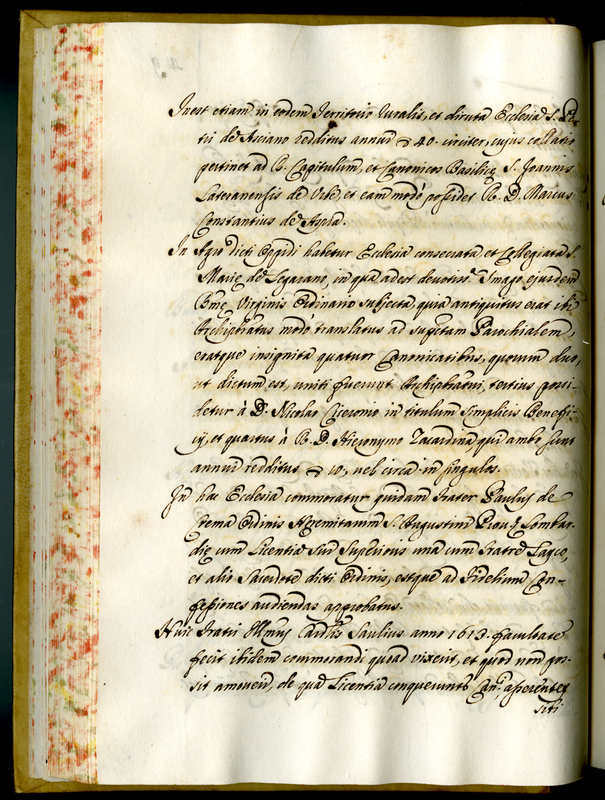 Inest etiam in eodem Territorio Ruralis, et diruta Ecclesia S.
tii de Asciano redditus annui 40. circiter, cujus collatio
pertinet ad R. Capitulum, et Canonicos Basilicę S. Joannis
Lateranensis de Urbe, et eam modò possidet R. D. Marcus
Constantius de
In Agro dicti Oppidi habetur Ecclesia consecrata, et Collegiata S.
Marię de Legarano, in qua adest devotiss.ª Imago ejusdem
Bmę Virginis Ordinario subjecta, quia antiquitus erat ibi
Archipbratus modò translatus ad supttam Parochialem,
eratque insignita quatuor Canonicatibus, quorum duo,
ut dictum est, uniti fuerunt Archipbratui, tertius possi-
detur à D. Nicolao Ciceronio in titulum simplicis Benefi-
cij, et quartus à R. D. Hieronymo Zacardino, qui ambo sunt
annui redditus 10, vel circa in singulos.
In hac Ecclesia commoratur quidam frater Paulus de
Crema Ordinis Heremitarum S. Augustini Prov.ę Lombar-
dię cum Licentia sui Superioris una cum fratre Layco,
et alio Sacerdote dicti Ordinis, estque ad fidelium Con-
fessiones audiendas approbatus.
Huic fratri Illmus Cardlis Saulius anno 1613. facultatem
fecit ibidem commorandi quoad vixerit, et quod non pos-
sit amoveri, de qua Licentia conqueruntr Can.ci asserentes
sibi